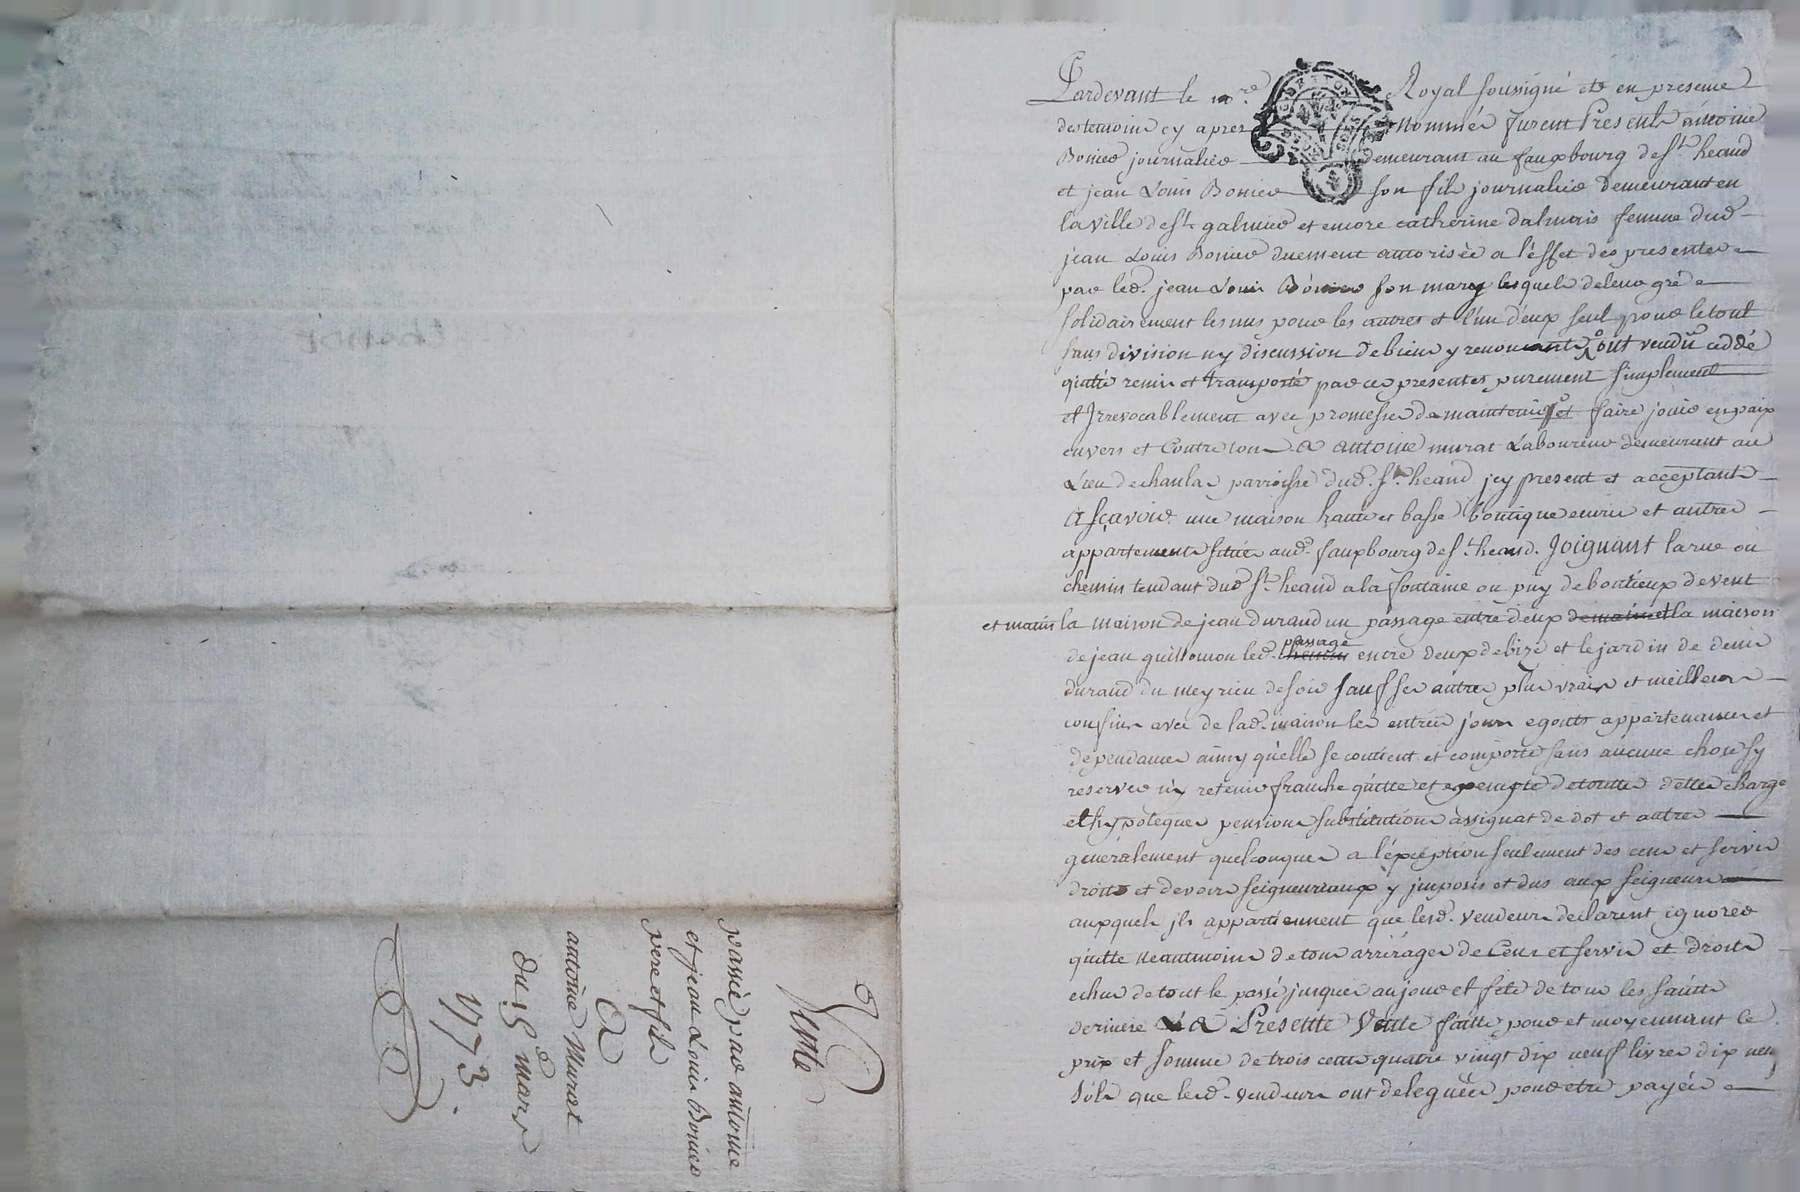 Vente
passée par antoine
et jean Louis Bonier
pere et fils
A
antoine Murat
Du 15e mars
1773.
Pardevant le nre Royal soussigné et en presence
des temoins cy apres nommés furent Presents antoine
Bonier journalier demeurant au fauxbourg de st heand
et jean Louis Bonier son fils journalier demeurant en
la ville de st galmier et encore catherine dalmais femme dud
jean Louis Bonier duement autorisée a l'effet des presentes
par led. jean Louis Bonier son mary lesquels de leur gré
solidairement les uns pour les autres et l'un d'eux seul pour le tout
sans division ny discussion de biens y renonçants ont vendu ceddé
quitté remis et transporté par ces presentes purement simplement
et Irrevocablement avec promesse de maintenir et faire jouir en paix
envers et Contre tous A antoine murat Laboureur demeurant au
Lieu de chanlas parroisse dud. st heand jcy present et acceptant
A sçavoir une maison haute et basse boutique ecurie et autres
appartements situés aud. fauxbourg de st heand. Joignant la rue ou
chemin tendant dud st heand a la fontaine ou puy de boulieux de vent
et matin la maison de jean durand un passage entre deux la maison
de jean guillomon led. passage entre deux de bize et le jardin de denis
durand du meyrieu de soir sauf ses autres plus vrais et meilleurs
confins avec de lad. maison les entrées jours egouts appartenances et
dependances ainsy qu'elle se contient et comporte sans aucune chose sy
reserver n'y retenir franche quitte et exempte de toutes dettes charges
et hypoteques pensions substitutions assignat de dot et autres
generalement quelconques a l'exception seulement des cens et servis
droits et devoirs seigneuriaux y imposés et dus aux seigneurs
auxquels jls appartiennent que lesd. vendeurs declarent ignorer
quitte neantmoins de tous arrérages de Cens et servis et droits
echus de tout le passé jusques au jour et fete de tous les saints
derniere La Presente Vente faitte pour et moyennant le
prix et somme de trois cents quatre vingt dix neuf livres dix neuf
sols que lesd. vendeurs ont deleguée pour etre payée